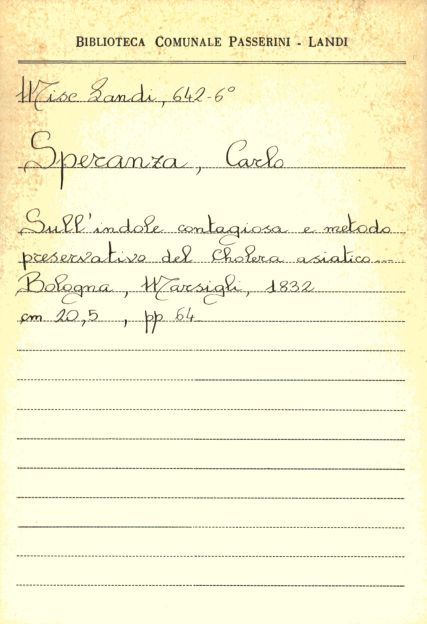 BIBLIOTECA COMUNALE PASSERINI - LANDI
Misc Landi, 642-6°
Speranza, Carlo
Sull'indole contagiosa e metodo
preservativo del Cholera asiatico...
Bologna, Marsigli, 1832
cm 20,5, pp 64